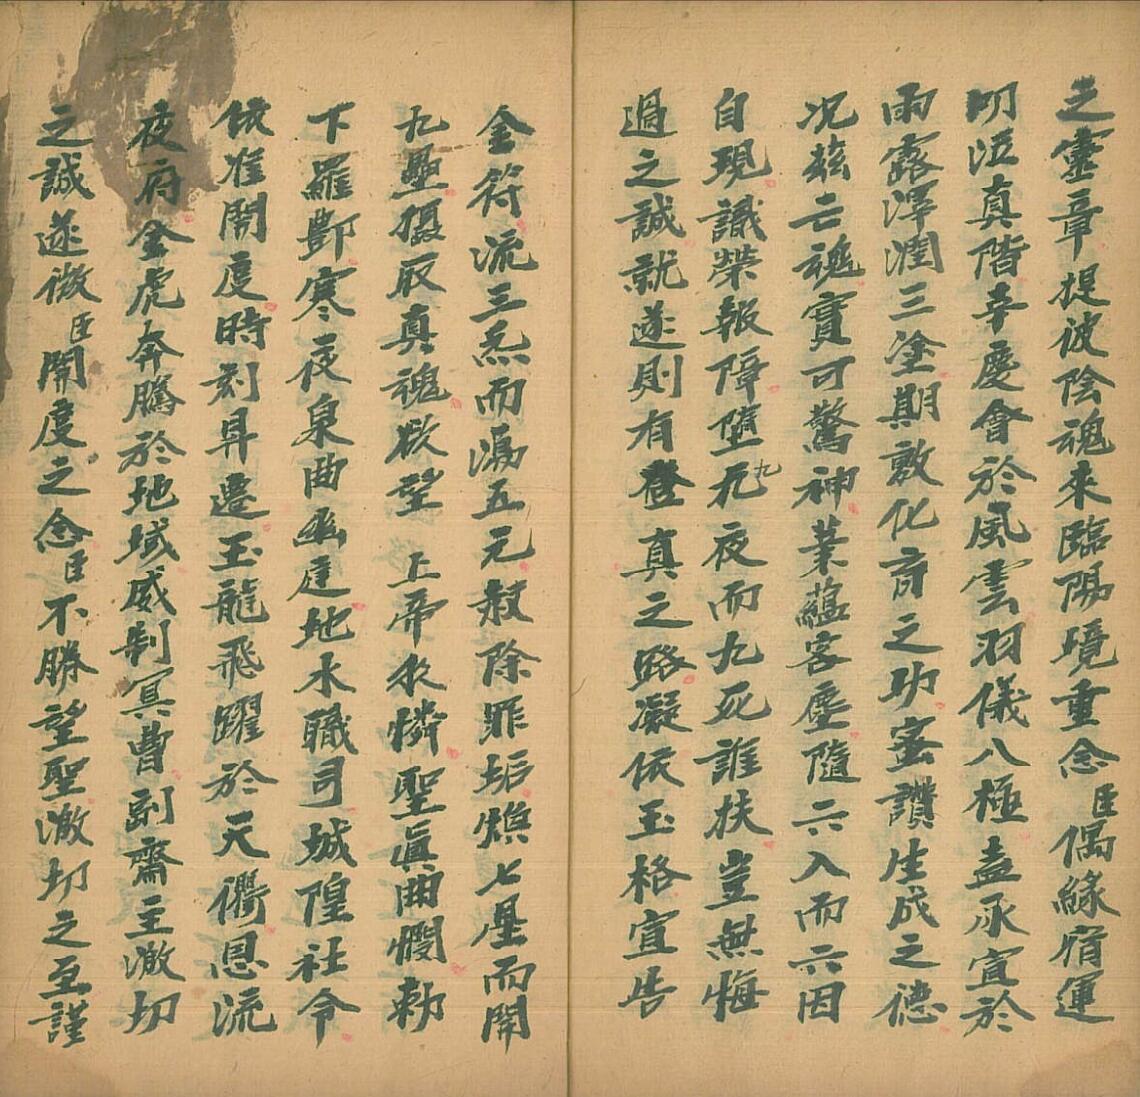 之靈章提彼陰魂來臨陽境重念臣偶緣宿運
叨泣真階幸慶會於風雲羽儀八極盍承宣於
雨露澤潤三塗期敷化育之功蜜讚生成之德
况玆亡魂實可驚神業蘊客塵隨六入而六因
自現識榮報障墮九夜而九死誰扶豈無悔
過之誠就遂則有登真之路凝依玉格宣告
金符流三炁而瀉五元赦除罪垢煥七星而開
九壘攝取真魂欲望 上帝承憐聖真開憫勅
下羅酆寒夜泉曲幽庭地水職司城隍社令
依准開度時刻昇遷玉龍飛躍於天衢恩流
夜府金虎奔騰於地域威制冥曹副齋主激切
之誠遂微臣開度之念臣不勝望聖激切之至謹